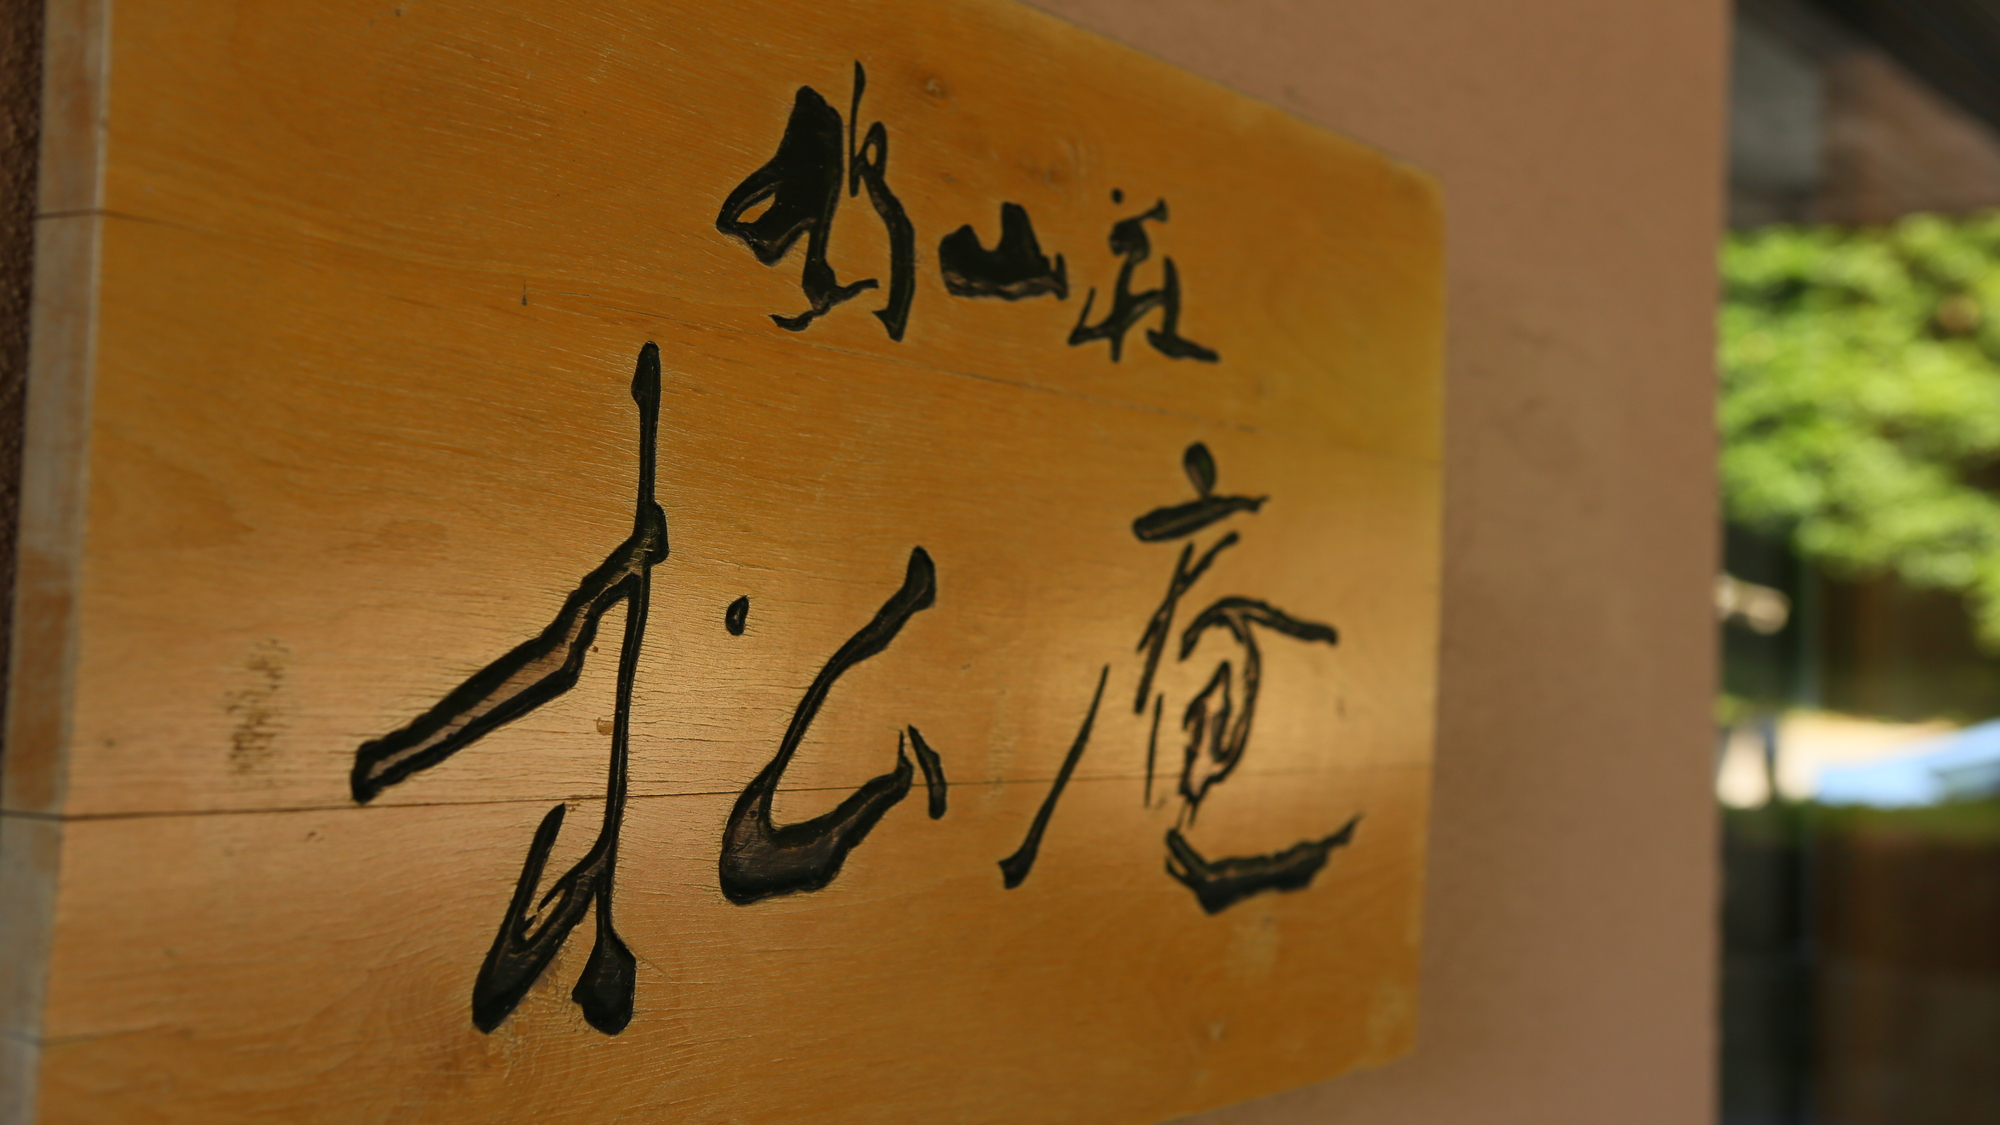 野山荘
松庵